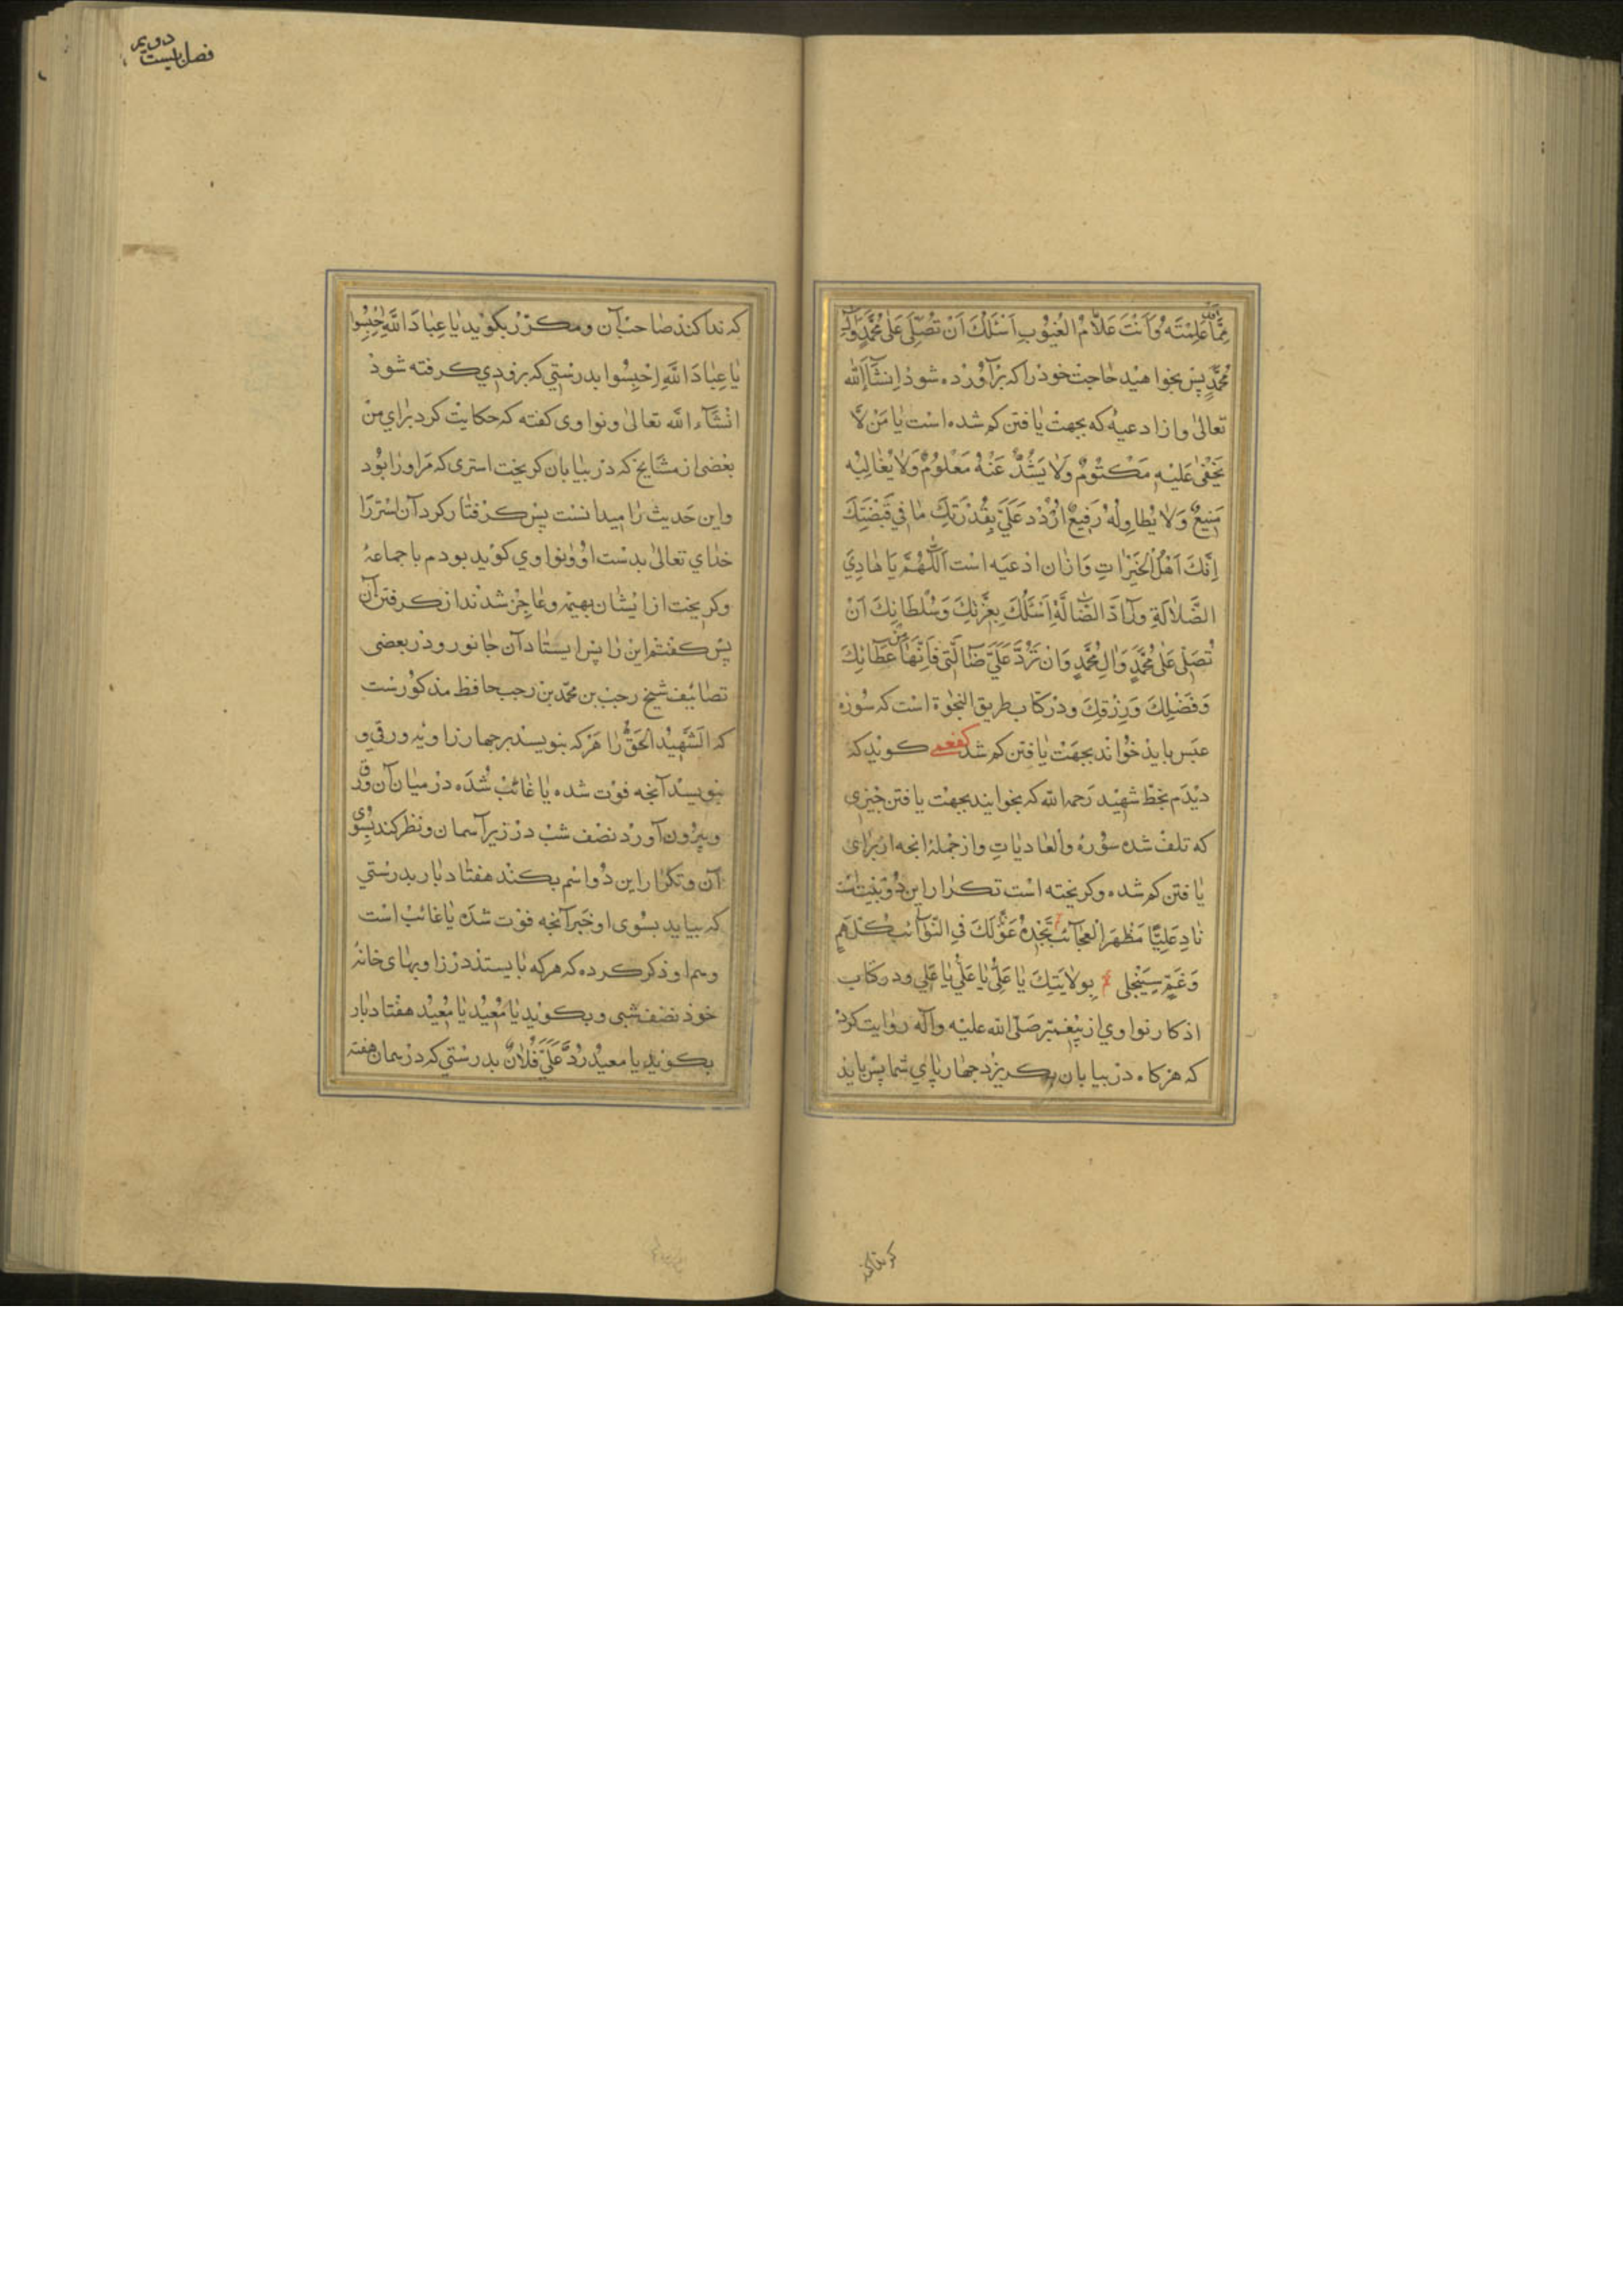 مِمَّا عَلِمْتَهُ وَاَنْتَ عَلّامُ الْغُيُوبِ اَسْئَلُكَ اَنْ تُصَلِّىَ عَلىٰ مُحَمَّدٍ وَالِ
مُحَمَّدٍ پس بخواهید حاجت خود را که برآورده شود اِنشآءَالله
تعالىٰ واز ادعیهٔ که بجهت یافتن کم شده است یا مَنْ لا
يَخْفىٰ عَلَيْهِ مَكْتُومٌ وَلا يَشُذُّ عَنْهُ مَعْلُومٌ وَلا يُغالِبُه
مَنيعٌ وَلا يُطاوِلُهُ رَفيعٌ اُرْدُد عَلَىَّ بِقُدْرَتِكَ ما في قَبْضَتِكَ
اِنَّكَ اَهْلُ الْخَيْراتِ وَازان ادعیه است اَللّهُمَّ يا هادِيَ
الضَّلالَةِ ورآدَّ الضّالَّةِ اَسْئَلُكَ بِعِزَّتِكَ وَسُلْطانِكَ اَنْ
تُصَلِّى عَلىٰ مُحَمَّدٍ وَالِ مُحَمَّدٍ وَان تَرُدَّ عَلَىَّ ضآلَّتى فَاِنَّها مِن عَطائِكَ
وَفَضْلِكَ وَرِزْقِكَ ودر کتاب طریق النجوة است که سُوره
عبس باید خواند بجهت یافتن کم شده کفعمى کوید که
دیدم بخط شهید رحمه الله که بخوانید بجهت یافتن چیزی
که تلف شده سورهٔ والعادیاتِ واز جمله انچه از برای
یافتن کم شده وکریخته است تکرار این دُو بَیت است
نادِ عَلِيًّا مَظْهَرَ الْعَجآئِبِ تَجِدْهُ عَوْنًا لَكَ فِي النَّوآئِبِ كُلُّ هَمٍّ
وَغَمٍّ سَيَنْجَلى بِولايَتِكَ يا عَلِىُّ يا عَلىُّ يا عَلي ودر کتاب
اذکار نواوي از پیغمبر صَلّى الله علیه وآله روایت کرده
که هرکاه در بیابان بکریزد چهارپای شما پس باید
که ندا کند صاحب آن ومکرّر بکوید یا عِبادَ اللهِ اِحْبِسُوا
یا عِبادَ اللهِ اِحْبِسُوا بدرستي که بزودي کرفته شود
انشآءالله تعالىٰ ونواوی کفته که حکایت کرد برای من
بعضی از مشایخ که در بیابان کریخت استری که مر او را بود
واین حدیث را میدانست پس کرفتار کرد آن استر را
خدای تعالىٰ بدست او ونواوي کوید بودم با جماعهٔ
وکریخت از ایشان بهیمه وعاجز شدند از کرفتن آن
پس کفتم این را پس ایستاد آن جانور ودر بعضی
تصانیف شیخ رجب بن محمد بن رجب حافظ مذکورست
که اَلشَّهیدُ الْحَقُّ را هرکه بنویسد بر چهار زاویه ورقی و
بنویسد آنچه فوت شده یا غائب شده در میان آن ورق
وبیرون آورد نصف شب در زیر آسمان ونظر کند بسوی
آن وتکرار این دو اسم بکند هفتاد بار بدرستي
که بیاید بسوی او خبر آنچه فوت شده یا غائب است
وهم او ذکر کرده که هرکه بایستد در زاویهای خانهٔ
خود نصف شبی وبکوید یا مُعیدُ یا مُعیدُ هفتاد بار
بکوید یا معیدُ رُدَّ عَلَىَّ فُلانٌ بدرستي که در همان هفته
فصل بیست دویم
که ندا کند